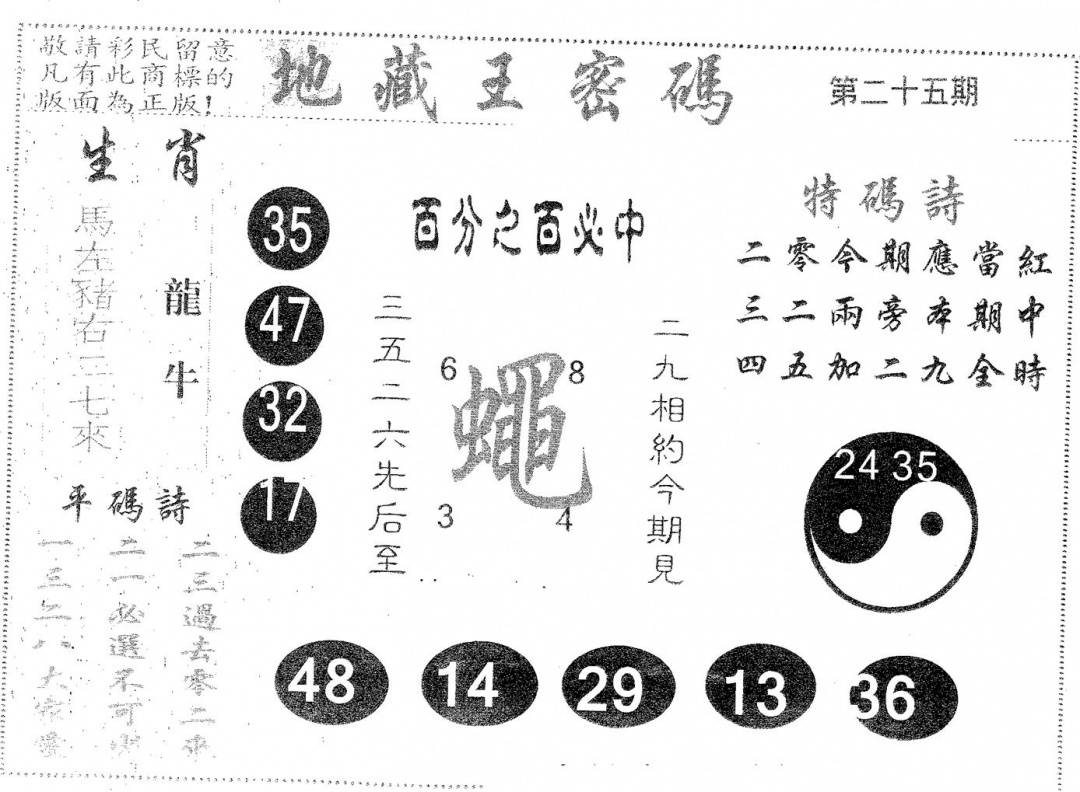 敬請彩民留意
凡有此商標的
版面為正版!
地藏王密碼
第二十五期
生肖
馬左豬右三七來
龍牛
35
47
32
17
百分之百必中
三五二六先后至
6
8
蠅
3
4
二九相約今期見
特碼詩
二零今期應當紅
三二兩旁本期中
四五加二九全時
24 35
平碼詩
一三二八大家愛
二一必選不可少
二三過去零二來
48
14
29
13
36